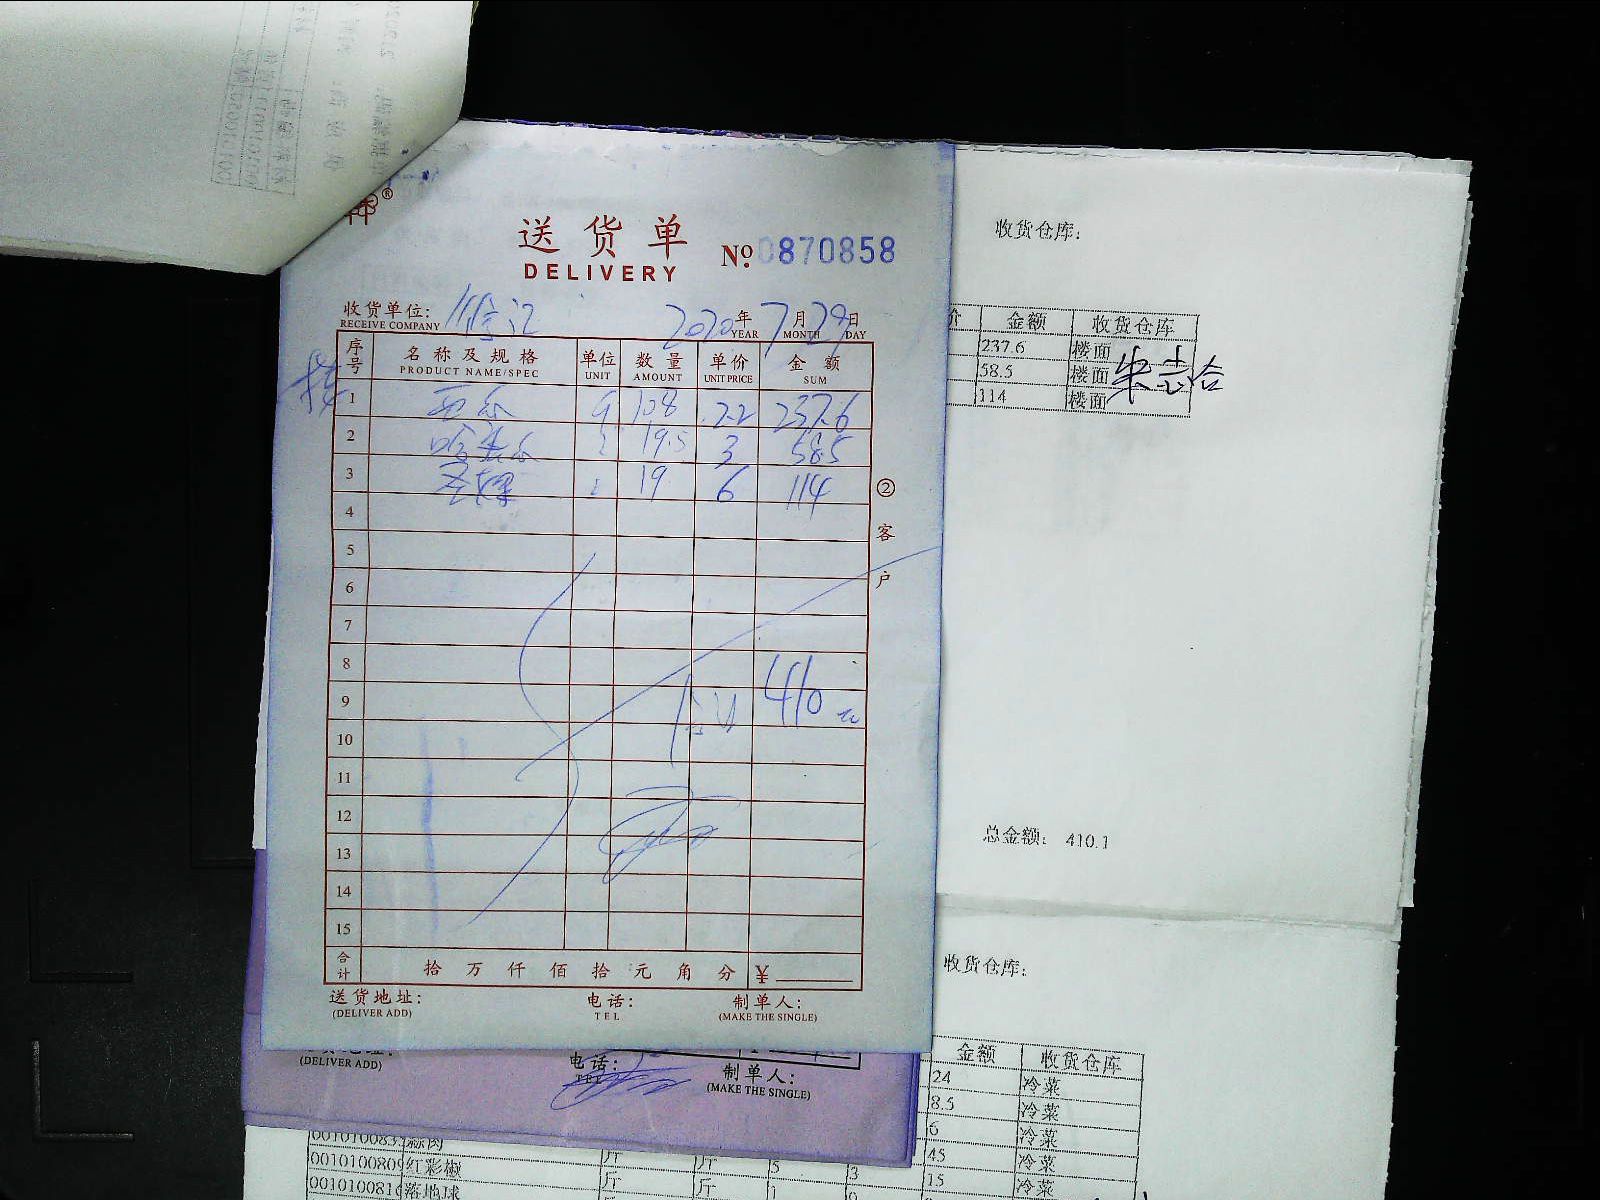 送货单
DELIVERY
No 0870858
收货单位:
RECEIVE COMPANY
2020年7月29日
YEAR MONTH DAY
序号 名称及规格 单位 数量 单价 金额
PRODUCT NAME/SPEC UNIT AMOUNT UNIT PRICE SUM
1 西瓜 108 2.2 237.6
2 哈密瓜 19.5 3 58.5
3 19 6 114
4
5
6
7
8
9
合计 410元
10
11
12
13
14
15
合计 拾万仟佰拾元角分 ¥
送货地址: 电话: 制单人:
(DELIVER ADD) TEL (MAKE THE SINGLE)
②客户
收货仓库:
金额 收货仓库
237.6 楼面
58.5 楼面
114 楼面
朱志合
总金额: 410.1
收货仓库:
金额 收货仓库
24 冷菜
8.5 冷菜
6 冷菜
45 冷菜
15 冷菜
(DELIVER ADD) 电话: 制单人:
TEL (MAKE THE SINGLE)
红彩椒 斤 斤 5 3
落地球 斤 1